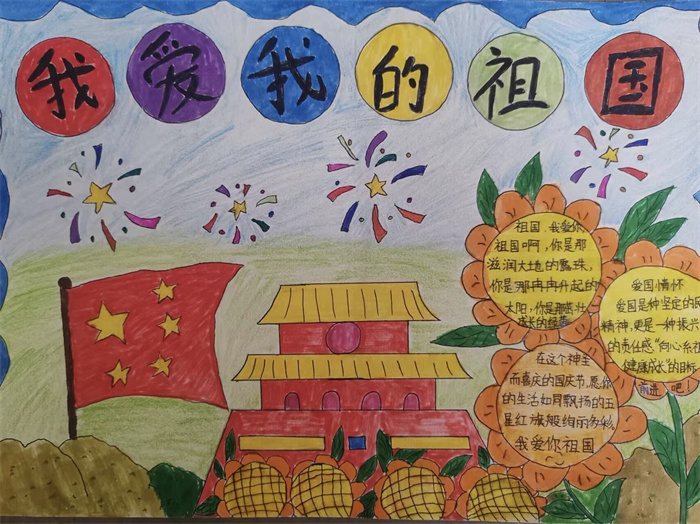 我爱我的祖国
祖国,我爱你
祖国啊,你是那
滋润大地的露珠,
你是那冉冉升起的
太阳,你是那茁壮
成长的
爱国情怀
爱国是种坚定的民
精神,更是一种振兴
的责任感"向心系祖
健康成长"的目标
前进吧
在这个神圣
而喜庆的国庆节,愿你
的生活如同飘扬的五
星红旗般绚丽多彩。
我爱你祖国